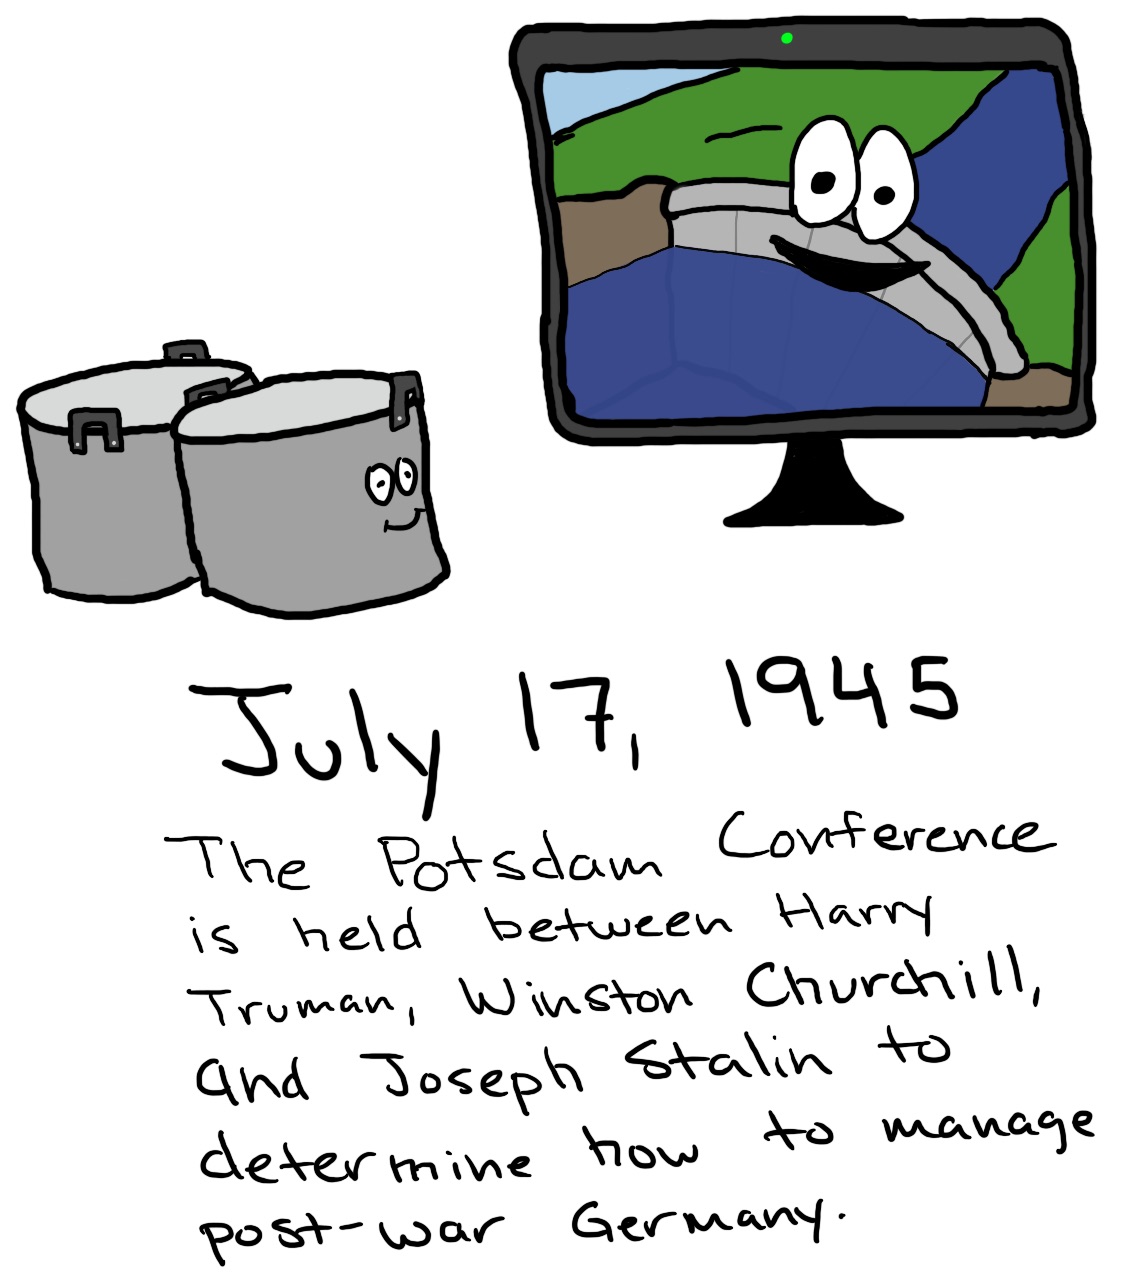 July 17, 1945
The Potsdam Conference
is held between Harry
Truman, Winston Churchill,
and Joseph Stalin to
determine how to manage
post-war Germany.